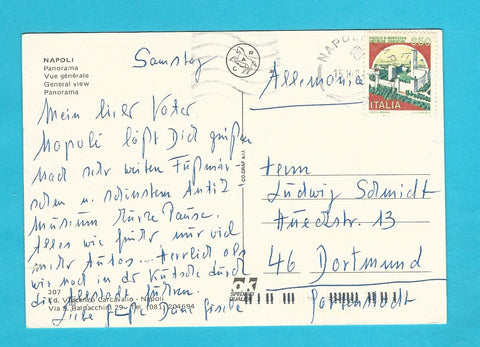 NAPOLI
Panorama
Vue générale
General view
Panorama
Samstag
Mein lieber Vater.
Napoli läßt Dich grüßen
Nach sehr weiten Fußmär-
schen u. schönstem Antik
Museum kurze Pause.
Alles wie früher nur viel
mehr Autos... Herrlich als
wir noch in der Kutsche durch
die Altstadt fuhren.
Liebe Grüße Deine Gisela
307
Ed. Vincenzo Carcavallo - Napoli
Via S. Baldacchini 29 - Tel. (081) 204694
NAPOLI
850
ITALIA
Allemania
Herrn
Ludwig Schmidt
13
46 Dortmund
Gartenstadt